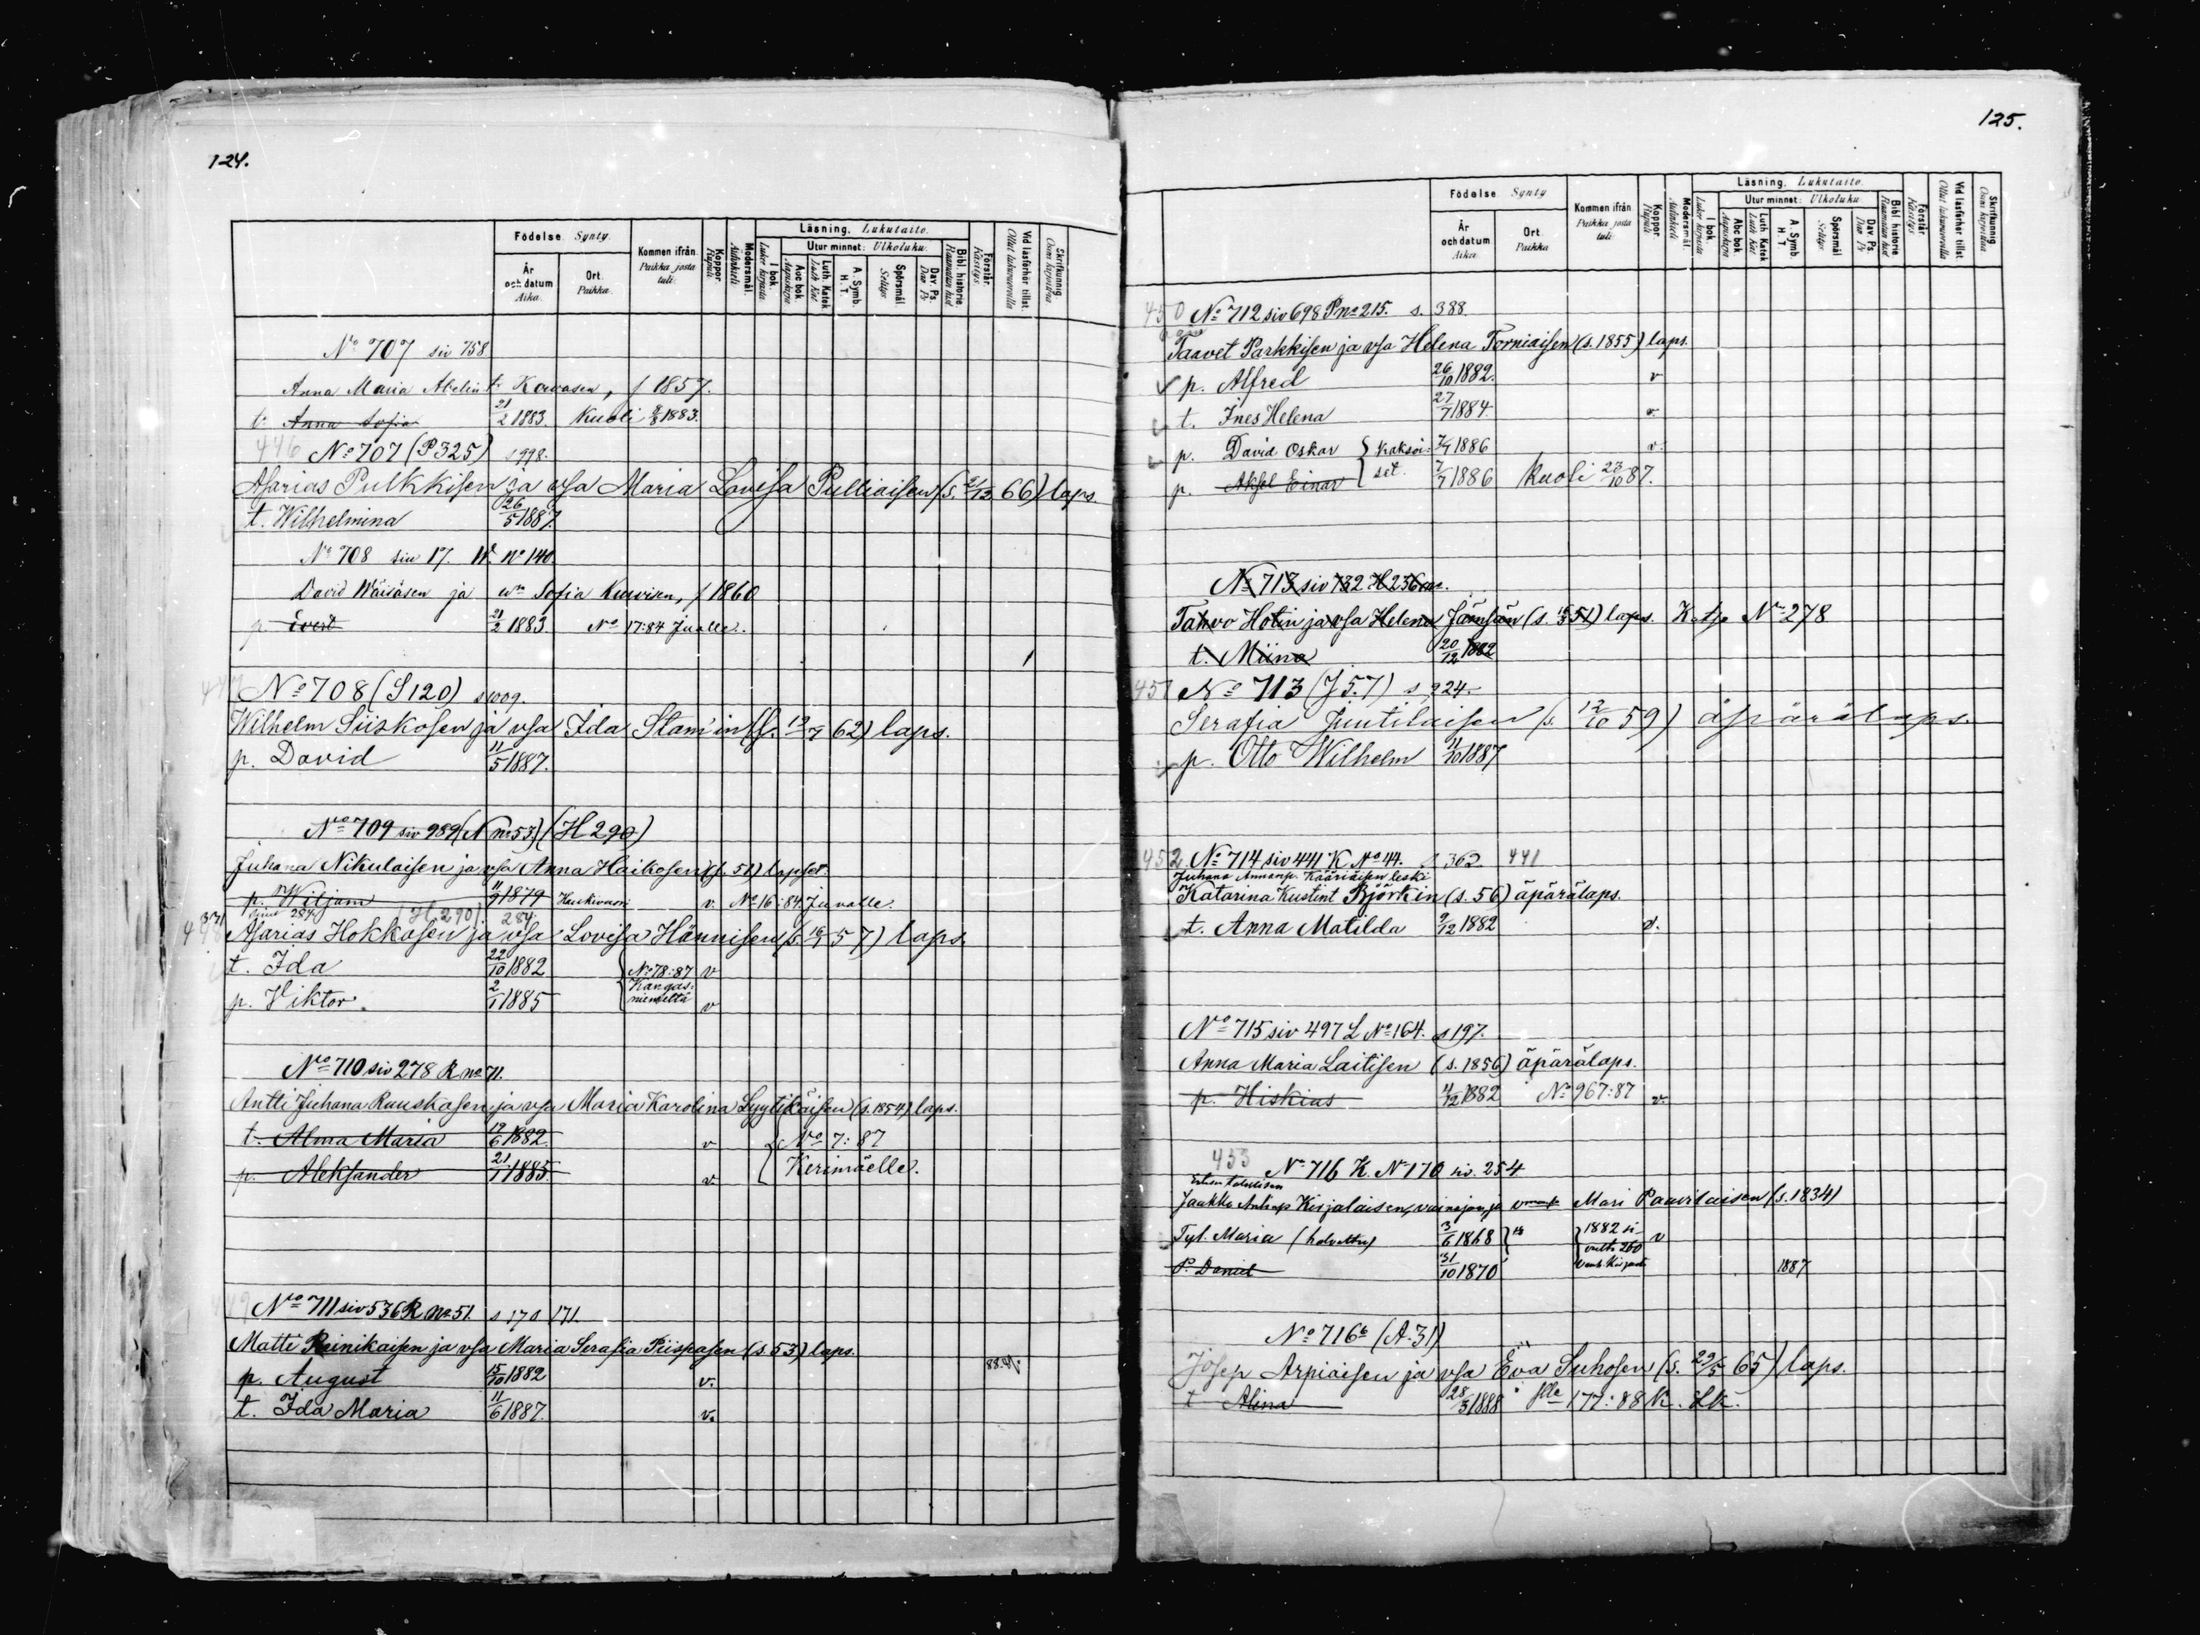 124.
Födelse. Synty.
År och datum Aika.
Ort. Paikka.
Kommen ifrån. Paikka josta tuli.
Koppor. Rupuli
Modersmål. Äidinkieli
Läsning. Lukutaito.
I bok. Lukee kirjasta
Utur minnet: Ulkoluku.
Abc bok Aapiskirja
Luth. Katek Luth. Kat.
A. Symb. H. T.
Spörsmål Selitys
Dav. Ps. Dav. Ps
Bibl. historie. Raamatun hist
Förstår. Käsitys.
Vid läsförhör tillst. Ollut lukuluvuilla
Skrifkunnig Osaa kirjoittaa
No 707 siv 758
Anna Maria Abelin t. Kovasen, f 1857.
t. Anna Sofia 21/2 1883. Kuoli 9/8 1883.
446 No 707 (P325) s 998.
Asarias Pulkkisen ja vsa Maria Lovisa Pulliaisen (s. 2/12 66) laps.
t. Wilhelmina 26/5 1887.
No 708 siv 17. W. No 140
David Wäisäsen ja vn Sofia Kurvisen, f 1860
p. Evert 21/2 1883. No 17:84 Juvalle.
No 708 (S120) s 1009.
Wilhelm Siiskosen ja vsa Ida Stam'in (s. 19/7 62) laps.
p. David 11/5 1887.
No 709 siv 989 (N no 53.) (H 290)
Juhana Nikulaisen ja vsa Anna Haikosen (s. 51) lapset.
p. Wiljam 11/9 1879 Haukivuori v. No 16:84 Juvalle.
284. (H.290). 284.
Asarias Hokkasen ja vsa Lovisa Hännisen (s. 16/1 57) laps.
t. Ida 22/10 1882 No 78:87 v
p. Viktor. 2/1 1885 Kangasniemeltä v
No 710 siv 278 R no 71.
Antti Juhana Rauskasen ja vsa Maria Karolina Lyytikäisen (s. 1854) laps.
t. Alma Maria 19/6 1882. v No 7:87
p. Aleksander 21/1 1885. v. Kerimäelle.
No 711 siv 536 R no 51. s 170 171.
Matti Reinikaisen ja vsa Maria Serafia Piispasen (s. 53) laps.
p. August 15/10 1882 v.
t. Ida Maria 11/6 1887. v.
125.
Födelse. Synty
År och datum Aika.
Ort. Paikka
Kommen ifrån Paikka josta tuli.
Koppor. Rupuli
Modersmål. Äidinkieli
Läsning. Lukutaito.
I bok. Lukee kirjasta
Utur minnet: Ulkoluku.
Abc bok Aapiskirja
Luth. Katek Luth. Kat.
A. Symb H. T.
Spörsmål Selitys
Dav. Ps. Dav. Ps
Bibl. historie Raamatun hist
Förstår Käsitys
Vid läsförhör tillst. Ollut lukuluvuilla
Skrifkunnig Osaa kirjoittaa
450 No 712 siv 698 P no 215. s. 388
Taavet Parkkisen ja vsa Helena Torniaisen (s. 1855) laps.
p. Alfred 26/10 1882. v
t. Ines Helena 27/7 1884. v.
p. David Oskar kaksoi: 7/7 1886 v.
p. Aksel Einar set. 7/7 1886 Kuoli 23/10 87.
No 713 siv 732 H 236
Tahvo Hotin ja vsa Helena Jämsän (s. 51) laps. Katso No 278
t. Miina 20/12 1882
451 No 713 (J 57) s 924.
Serafia Juutilaisen (s. 12/10 59) äpärälaps.
p. Otto Wilhelm 11/10 1887
452 No 714 siv 441 K No 44. s 362. 441
Juhana Kääriäisen leski
Katarina Kustint Björkin (s. 56) äpärälaps.
t. Anna Matilda 9/12 1882 v.
No 715 siv 497 L No 164. s 197.
Anna Maria Laitisen (s. 1856) äpärälaps.
p. Hiskias 4/12 1882 No 967:87 v.
453 No 716 K. No 170 siv. 254
Jaakko Kirjalaisen, vainajan, ja Mari Paavilaisen (s. 1834)
Tyt. Maria 3/6 1868 1882 v
P. Daniel 31/10 1870 1887
No 716b (A.31)
Josep Arpiaisen ja vsa Eva Suhosen (s. 29/5 65) laps.
t Alina 28/3 1888 177:88 k.